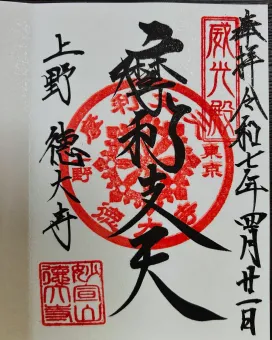 奉拝 令和七年四月廿一日
威光殿
東京
摩利支天
上野 徳大寺
妙宣山
徳大寺